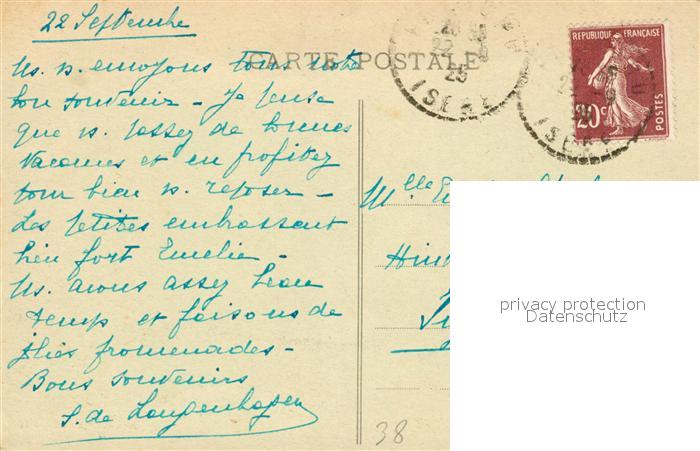 22 Septembre
CARTE POSTALE
Ns. v. envoyons tous notre
bon souvenir - Je pense
que v. passez de bonnes
vacances et en profitez
pour bien v. reposer -
Les petites embrassent
bien fort Emelie -
Ns. avons assez beau
temps et faisons de
jolies promenades -
Bons souvenirs
S. de Langenhagen
REPUBLIQUE FRANÇAISE
20c
POSTES
25
ISERE
ISERE
Mlle
38
privacy protection
Datenschutz